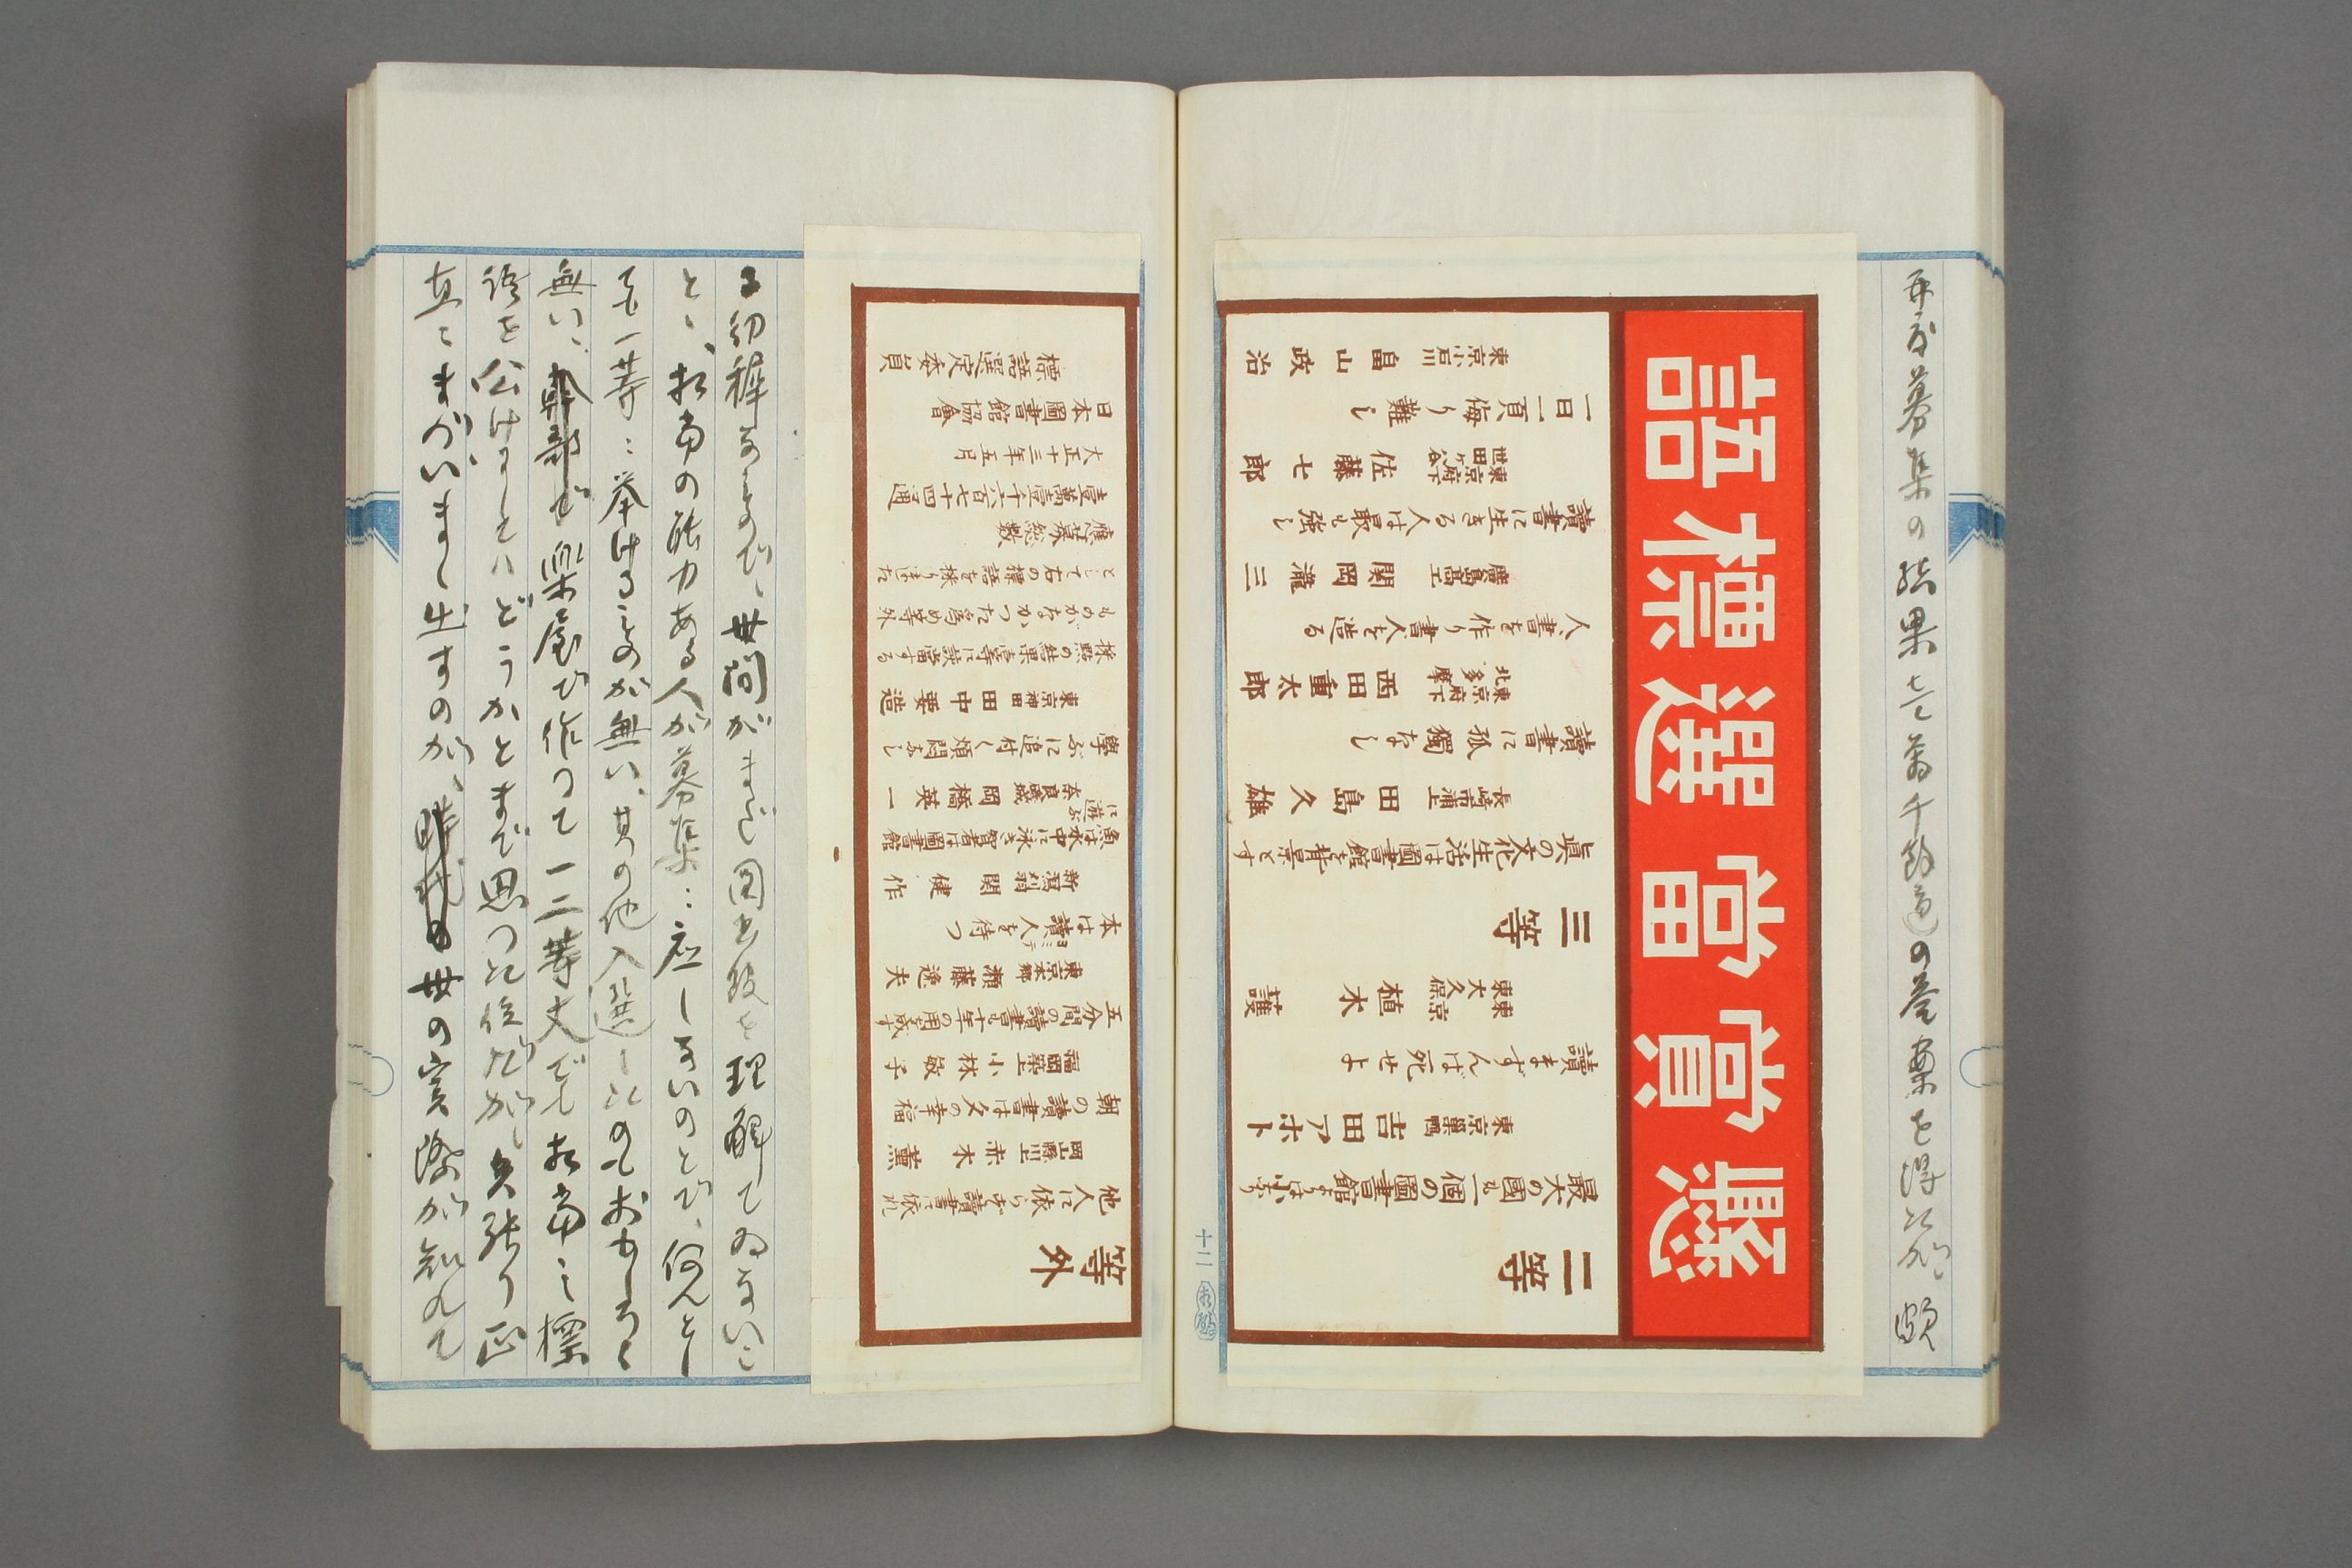 再度募集の結果壱萬千餘通の答案を得たが、頗
懸賞當選標語
二等
最大の國も一個の圖書館よりは小なり
東京巣鴨 吉田アホト
讀まずんば死せよ
東京東大久保 植木護
三等
眞の文化生活は圖書館を背景とす
長崎市浦上 田島久雄
讀書に孤獨なし
東京府下北多摩 西田重太郎
人、書を作り書人を造る
廣島高工 関岡瀧三
讀書に生きる人は最も強し
東京府下世田ヶ谷 佐藤七郎
一日一頁侮り難し
東京小石川 畠山政治
十二
等外
他人に依らず讀書に依れ
岡山縣川上 赤木薫
朝の讀書は夕の幸福
福岡築上 小林敏子
五分間の讀書も十年の用を成す
東京本郷 瀬藤逸夫
本は讀人ヨミテを待つ
新潟刈羽 関健作
魚は水中に泳ぎ賢者は圖書館に遊ぶ
奈良磯城 岡橋英一
學ぶに追付く煩悶なし
東京神田 田中要造
採點の結果壹等に該當する
ものがなかつた爲め等外
として右の標語を採りました
應募総數
壹萬壹千六百七十四通
大正十三年五月
日本圖書館協會
標語選定委員
る幼稚なもので、世間がまだ図書館を理解してゐないこ
と、相当の能力ある人が募集に応じないのとで、何んとし
ても一等に挙げるものが無い、其の他入選したのもおかしく
無い、幹部が楽屋で作つて一二等丈でも相当に標
語を公けにしたらどうかとまで思つた位だが、矢張り正
直にまづいまゝ出すのが、世の実際が知れて